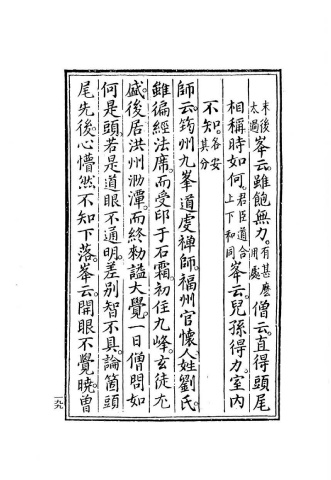 未後太過峯云雖飽無力有甚麽用處僧云直得頭尾
相稱時如何君臣道合上下和同峯云兒孫得力室内
不知各安其分
師云筠州九峯道虔禪師福州官懷人姓劉氏
雖徧經法席而受印于石霜初住九峰玄徒尤
盛後居洪州泐潭而終勅謚大覺一日僧問如
何是頭若是道眼不通明差別智不具論箇頭
尾先後心懵然不知下落峯云開眼不覺曉曽
一九